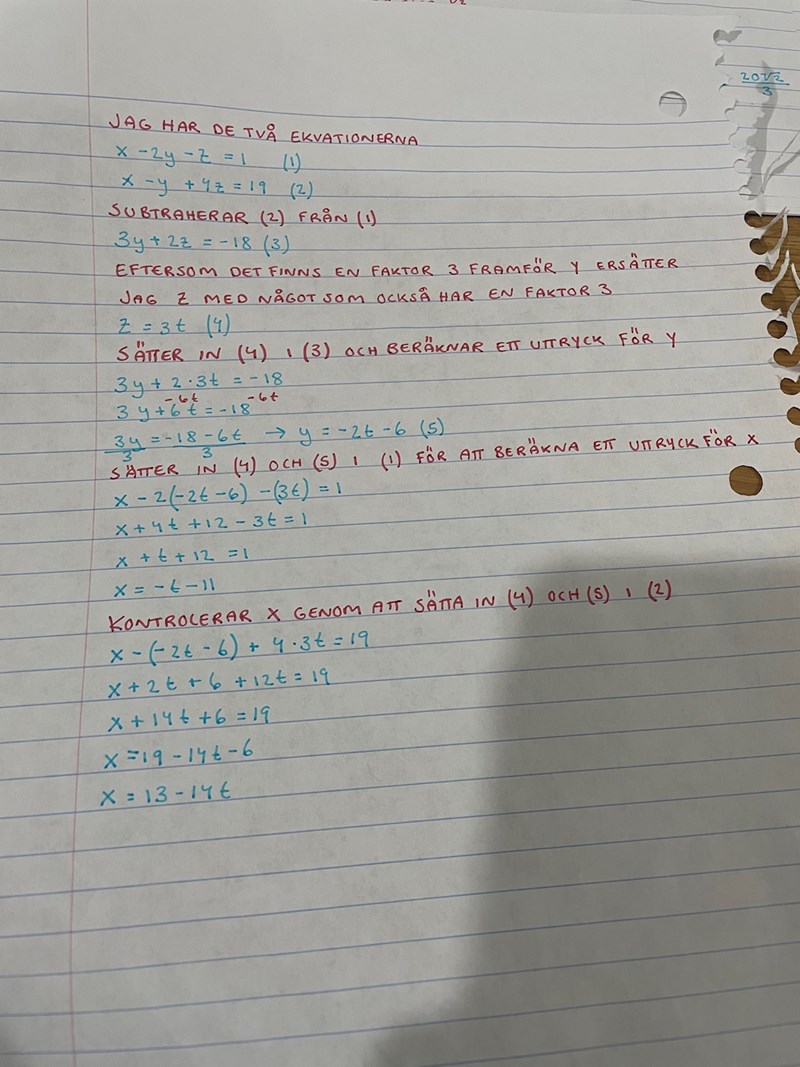 20√2
3
JAG HAR DE TVÅ EKVATIONERNA
x - 2y - z = 1 (1)
x - y + 4z = 19 (2)
SUBTRAHERAR (2) FRÅN (1)
3y + 2z = -18 (3)
EFTERSOM DET FINNS EN FAKTOR 3 FRAMFÖR Y ERSÄTTER
JAG Z MED NÅGOT SOM OCKSÅ HAR EN FAKTOR 3
z = 3t (4)
SÄTTER IN (4) I (3) OCH BERÄKNAR ETT UTTRYCK FÖR Y
3y + 2 · 3t = -18
-6t -6t
3y + 6t = -18
3y = -18 - 6t → y = -2t - 6 (5)
3 3
SÄTTER IN (4) OCH (5) I (1) FÖR ATT BERÄKNA ETT UTTRYCK FÖR X
x - 2(-2t - 6) - (3t) = 1
x + 4t + 12 - 3t = 1
x + t + 12 = 1
x = -t - 11
KONTROLERAR X GENOM ATT SÄTTA IN (4) OCH (5) I (2)
x - (-2t - 6) + 4 · 3t = 19
x + 2t + 6 + 12t = 19
x + 14t + 6 = 19
x = 19 - 14t - 6
x = 13 - 14t